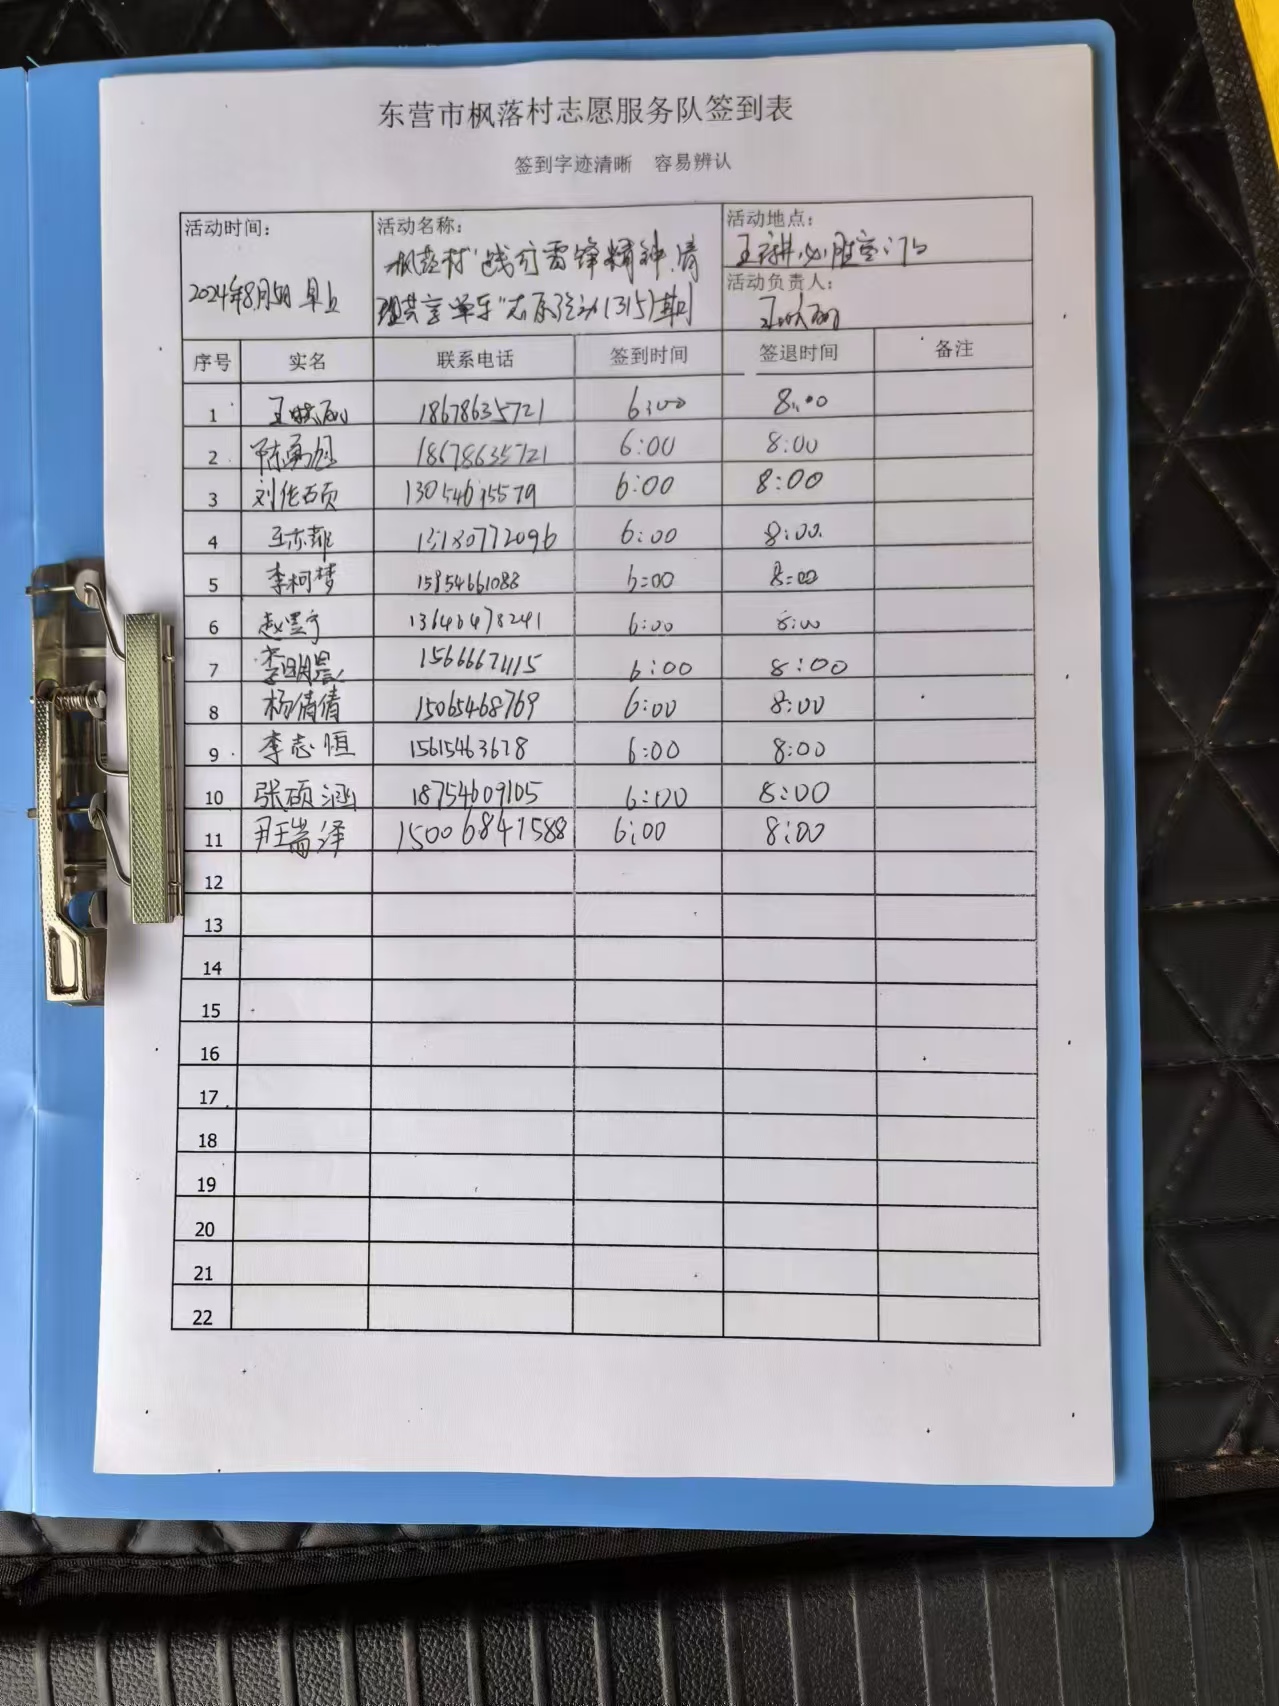 东营市枫落村志愿服务队签到表
签到字迹清晰 容易辨认
活动时间: 活动名称: 活动地点:
2024年8月5日 早上
枫落村"践行雷锋精神,清
理共享单车"志愿活动(315)期
王府井必胜客门口
活动负责人:
序号 实名 联系电话 签到时间 签退时间 备注
1 18678635721 6:00 8:00
2 陈勇旭 18678635721 6:00 8:00
3 刘佐硕 6:00 8:00
4 6:00 8:00
5 李柯梦 15954661088 6:00 8:00
6 13646478241 6:00 8:00
7 李明晨 6:00 8:00
8 杨倩倩 15065468769 6:00 8:00
9 李志恒 15615463678 6:00 8:00
10 张硕涵 18754609105 6:00 8:00
11 15006847588 6:00 8:00
12
13
14
15
16
17
18
19
20
21
22